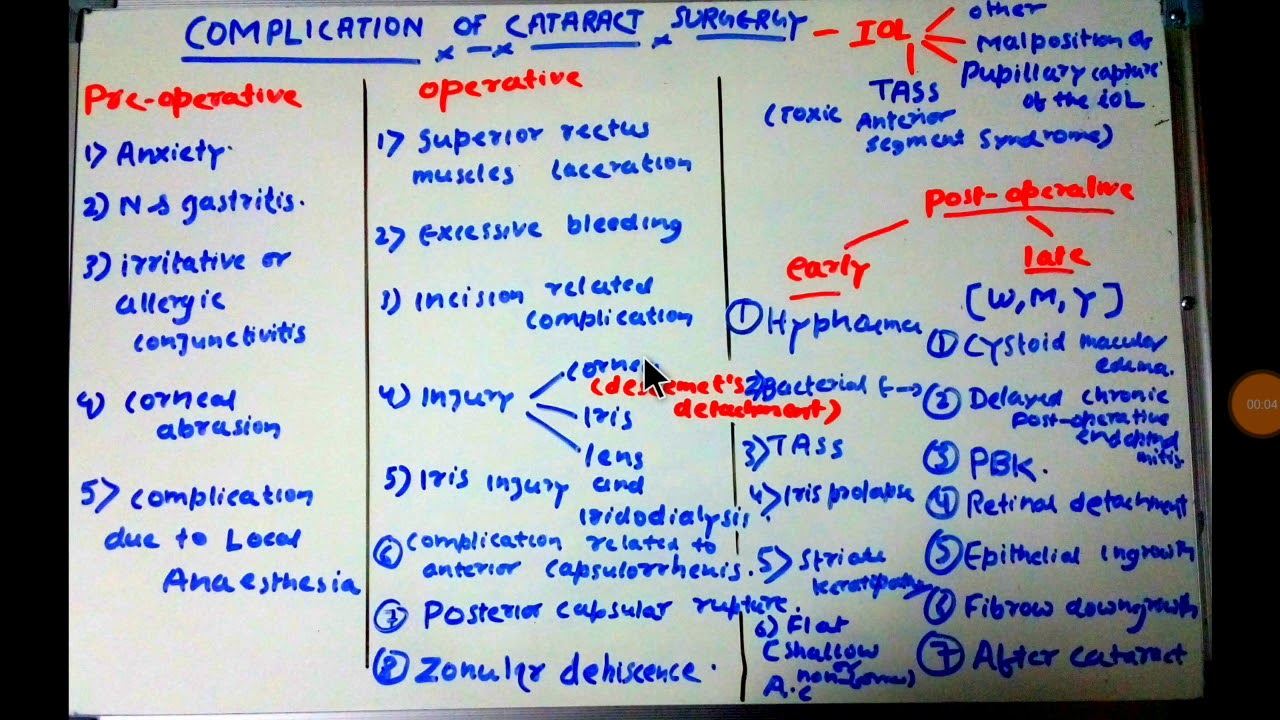 COMPLICATION OF CATARACT SURGERGY - IOL
other
Malposition of
Pupillary capture
of the iOL
TASS
(Toxic Anterior
segment Syndrome)
Pre-operative
1) Anxiety.
2) N & gastritis.
3) irritative or
allergic
conjunctivitis
4) corneal
abrasion
5) complication
due to Local
Anaesthesia
operative
1) Superior rectus
muscles laceration
2) Excessive bleeding
3) Incision related
complication
4) Injury
(descemet's
detachment)
Iris
lens
5) Iris Injury and
iridodialysis.
6 complication related to
anterior capsulorrhenis.
7 Posterior capsular rupture.
8 Zonular dehiscence.
post-operative
early
1 Hyphaema
2) Bacterial
3) TASS
4) Iris prolapse
5) Striate
keratopathy
6) Flat
(shallow
or
A.c
late
[W, M, Y]
1 Cystoid macular
edema.
2 Delayed chronic
post-operative
endophthal
mitis.
3 PBK.
4 Retinal detachment
5 Epithelial ingrowth
6 Fibrow downgrowth
7 After cataract
00:04